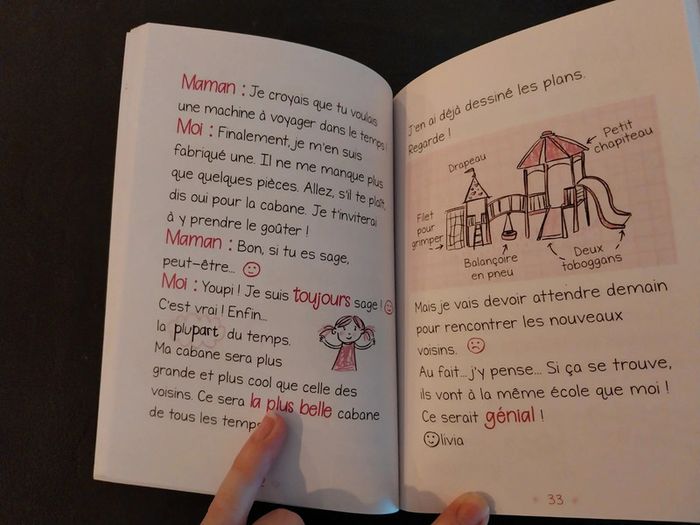 Maman : Je croyais que tu voulais
une machine à voyager dans le temps !
Moi : Finalement, je m'en suis
fabriqué une. Il ne me manque plus
que quelques pièces. Allez, s'il te plaît,
dis oui pour la cabane. Je t'inviterai
à y prendre le goûter !
Maman : Bon, si tu es sage,
peut-être...
Moi : Youpi ! Je suis toujours sage !
C'est vrai ! Enfin...
la plupart du temps.
Ma cabane sera plus
grande et plus cool que celle des
voisins. Ce sera la plus belle cabane
de tous les temps
J'en ai déjà dessiné les plans.
Regarde !
Drapeau
Petit
chapiteau
Filet
pour
grimper
Balançoire
en pneu
Deux
toboggans
Mais je vais devoir attendre demain
pour rencontrer les nouveaux
voisins.
Au fait... j'y pense... Si ça se trouve,
ils vont à la même école que moi !
Ce serait génial !
Olivia
33